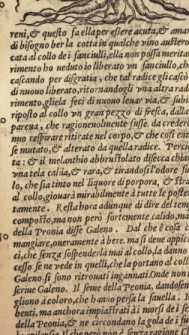 reni, & questo fa ella per essere acuta, & ama
di bisogno ber la cotta in qualche vino austero
cata al collo de i fanciulli, ella non possa merita
rimento ho veduto io liberato vn fanciullo, ch
cascando per disgratia, che tal radice gli cascò
di nuouo liberato, ritornandogli vna altra rad
rimento, gliela feci di nuouo leuar via, & subi
riposto al collo vn gran pezzo di fresca, dalla
pareua, che ragioneuolmente fusse, da crede
mo respirare ritirate nel corpo, & che così eui
se mutato, & alterato da quella radice. Perci
ta: & il melanthio abbrustolato disecca chia
vna tela calda, & rara, & tirandosi l'odore su
lo, che sia tinto nel liquore di porpora, & 
al collo, giouarà mirabilmente à tutte le posteme
tamente. Resta hora adunque di dire del tem
composto, ma non però fortemente calido, ma
della Peonia disse Galeno. Dal che è cosa
mangiare, oueramente à bere. ma si deue appic
ti, che senza sospenderla mai al collo, la danno
cesso se ne vede in quelli, che la portano al collo
Galeno, si sono ritrouati ingannati. Onde non
scriue Galeno. Il seme della Peonia, dandosene
gliono à coloro, che hanno persa la fauella.
benti, ma anchora impiastrati à i morsi de i
della Peonia, & ne circondano la gola de i